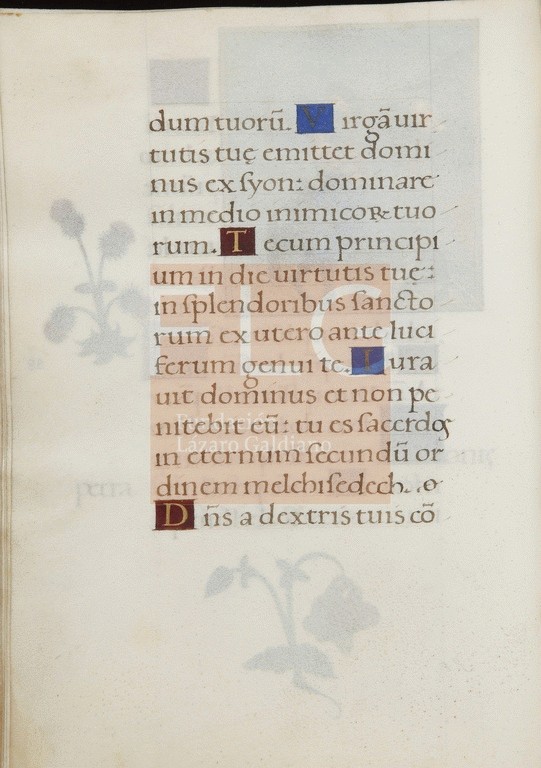 dum tuorū. Virgā uir
tutis tuę emittet domi
nus ex syon: dominare
in medio inimicoꝝ tuo
rum. Tecum principi
um in die uirtutis tuę:
in splendoribus sancto
rum ex utero ante luci
ferum genui te. Iura
uit dominus et non pe
nitebit eū: tu es sacerdos
in eternum secundū or
dinem melchisedech.
Dn̄s a dextris tuis cō
FLG
Fundación
Lázaro Galdiano